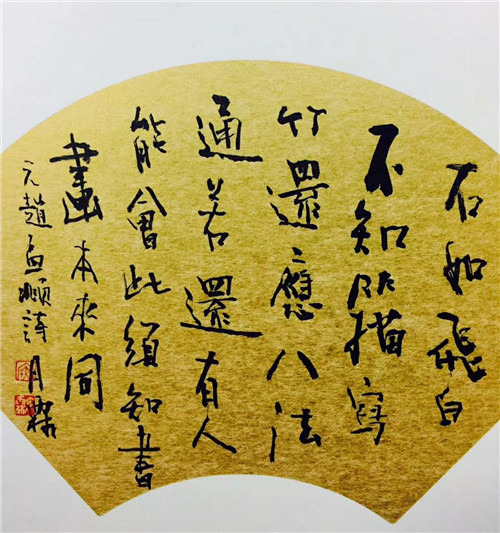 石如飛白
木如籀寫
竹還應八法
通若還有人
能會此須知書
畫本來同
元趙孟頫詩月